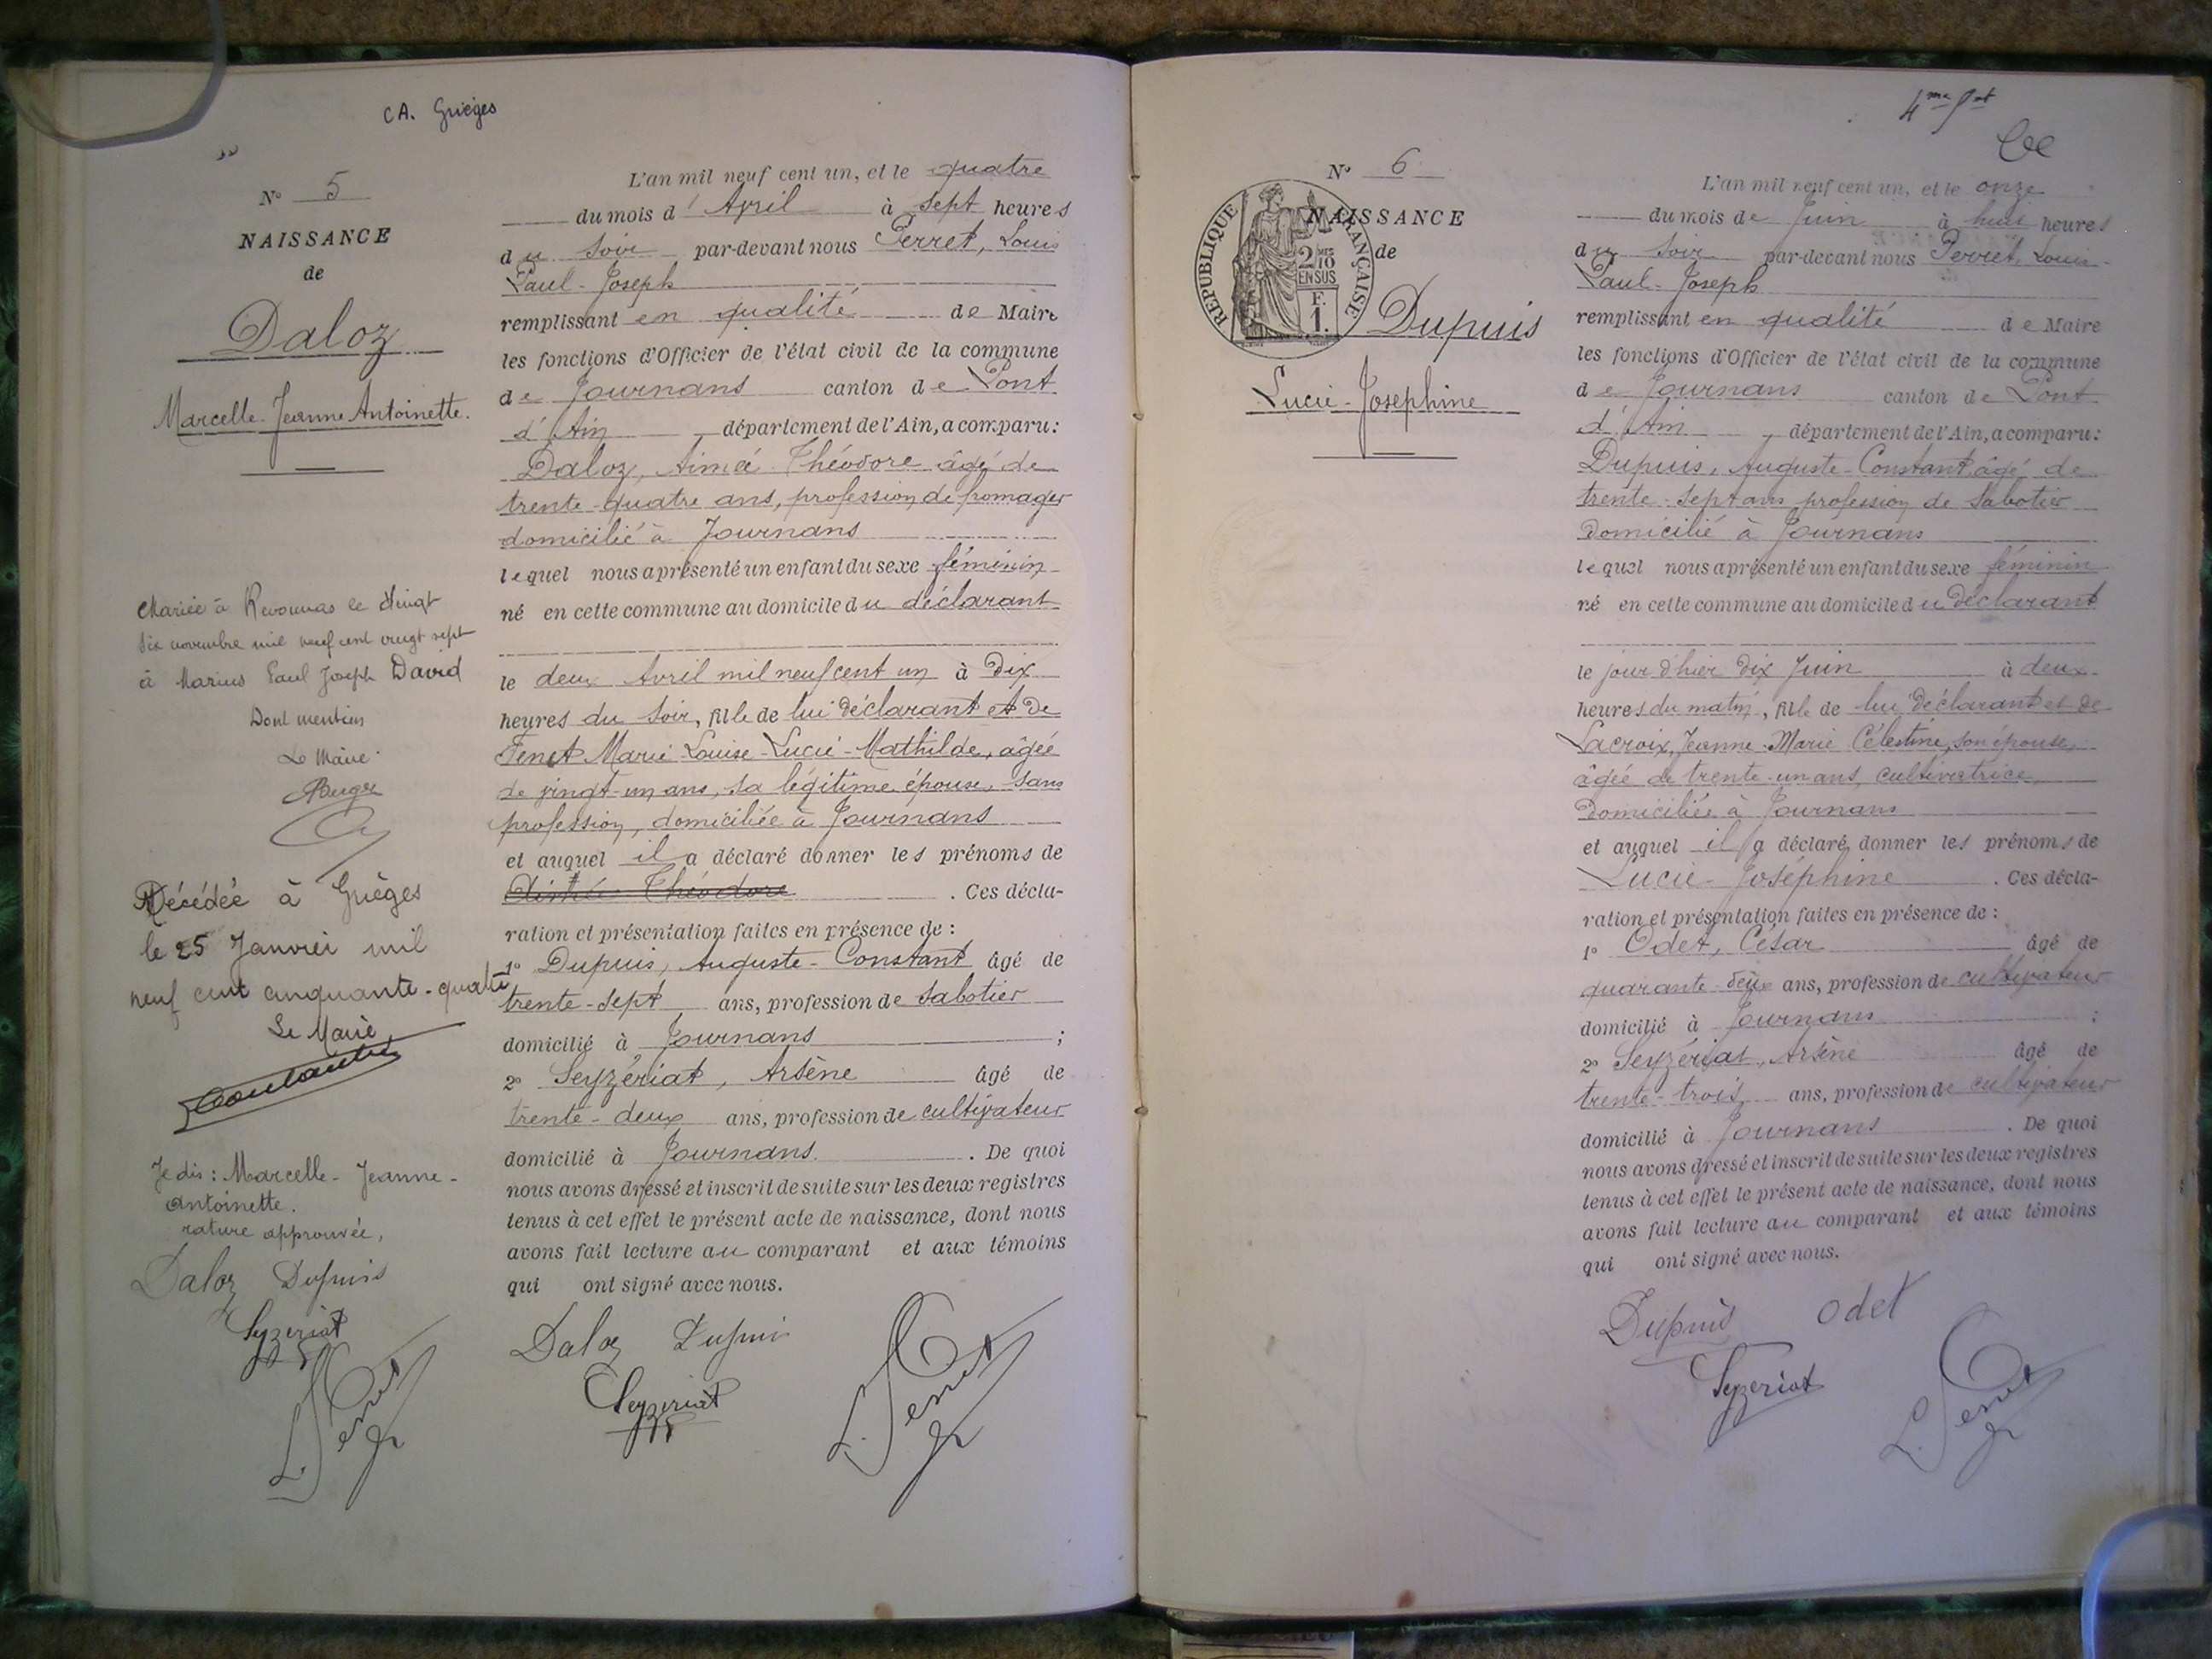 CA. Grièges
N° 5
NAISSANCE
de
Daloz
Marcelle-Jeanne Antoinette.
Mariée à Revonnas le vingt
six novembre mil neuf cent vingt sept
à Marius Paul Joseph David
Dont mention
Le Maire
Décédée à Grièges
le 25 Janvier mil
neuf cent cinquante-quatre
Le Maire
Je dis : Marcelle-Jeanne-
Antoinette.
rature approuvée,
Daloz Dupuis
Seyzeriat
L. Perret
L'an mil neuf cent un, et le quatre
du mois d'Avril à sept heures
du soir par-devant nous Perret, Louis
Paul-Joseph
remplissant en qualité de Maire
les fonctions d'Officier de l'état civil de la commune
de Journans canton de Pont
d'Ain département de l'Ain, a comparu :
Daloz, Aimé Théodore âgé de
trente-quatre ans, profession de fromager
domicilié à Journans
lequel nous a présenté un enfant du sexe féminin
né en cette commune au domicile du déclarant
le deux Avril mil neuf cent un à Dix
heures du soir, fille de lui déclarant et de
Fenet Marie-Louise-Lucie-Mathilde, âgée
de vingt-un ans, sa légitime épouse, sans
profession, domiciliée à Journans
et auquel il a déclaré donner les prénoms de
Aimée Théodore. Ces décla-
ration et présentation faites en présence de :
1° Dupuis, Auguste-Constant âgé de
trente-sept ans, profession de sabotier
domicilié à Journans ;
2° Seyzériat, Arsène âgé de
trente-deux ans, profession de cultivateur
domicilié à Journans. De quoi
nous avons dressé et inscrit de suite sur les deux registres
tenus à cet effet le présent acte de naissance, dont nous
avons fait lecture au comparant et aux témoins
qui ont signé avec nous.
Daloz Dupuis
Seyzeriat
L. Perret
4me
N° 6
NAISSANCE
de
RÉPUBLIQUE FRANÇAISE
2/10
EN SUS
F.
1.
Dupuis
Lucie-Joséphine
L'an mil neuf cent un, et le onze
du mois de Juin à huit heures
du soir par-devant nous Perret, Louis-
Paul-Joseph
remplissant en qualité de Maire
les fonctions d'Officier de l'état civil de la commune
de Journans canton de Pont
d'Ain, département de l'Ain, a comparu :
Dupuis, Auguste-Constant âgé de
trente-sept ans profession de Sabotier
Domicilié à Journans
lequel nous a présenté un enfant du sexe féminin
né en cette commune au domicile du déclarant
le jour d'hier dix Juin à deux
heures du matin, fille de lui déclarant et de
Lacroix, Jeanne-Marie Célestine, son épouse,
âgée de trente-un ans, cultivatrice
Domiciliée à Journans
et auquel il a déclaré donner les prénoms de
Lucie-Joséphine. Ces décla-
ration et présentation faites en présence de :
1° Odet, César âgé de
quarante-deux ans, profession de cultivateur
domicilié à Journans ;
2° Seyzériat, Arsène âgé de
trente-trois ans, profession de cultivateur
domicilié à Journans. De quoi
nous avons dressé et inscrit de suite sur les deux registres
tenus à cet effet le présent acte de naissance, dont nous
avons fait lecture au comparant et aux témoins
qui ont signé avec nous.
Dupuis Odet
Seyzeriat
L. Perret